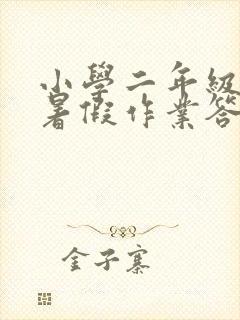 小學二年級
暑假作業答
金子寨